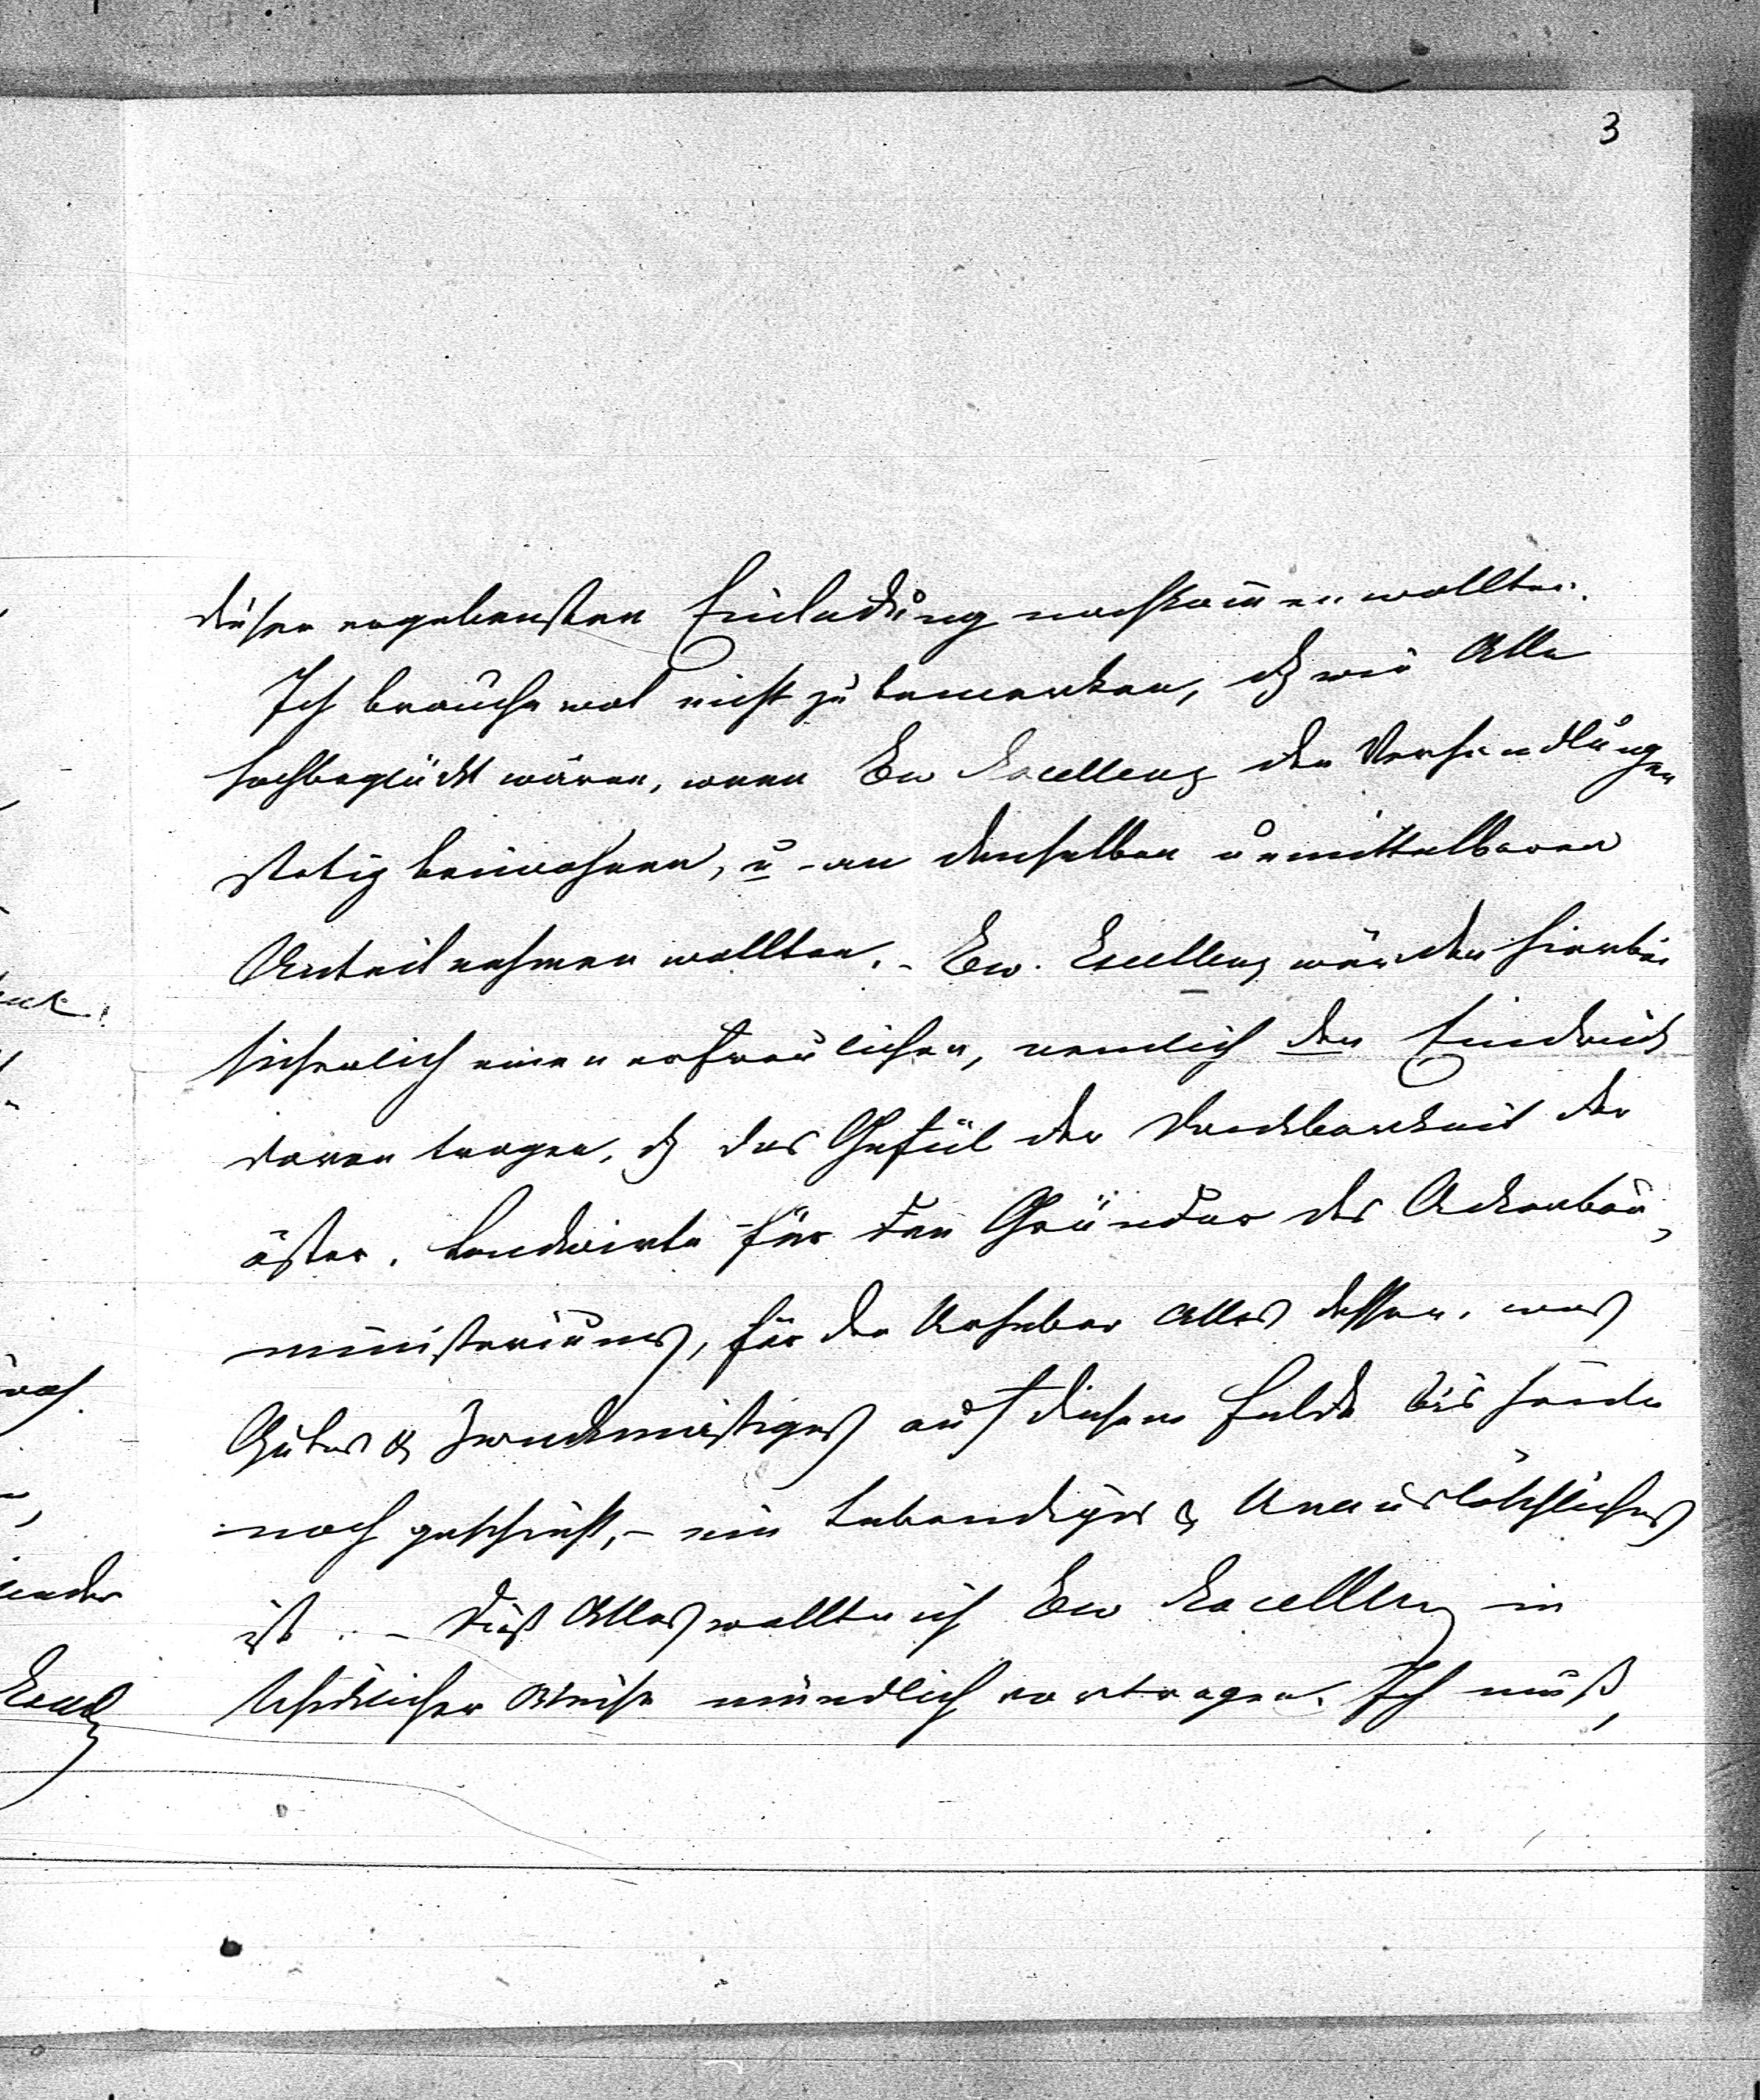 3
dieser ergebensten Einladung nachkom̅en wollten.
Ich brauche wol nicht zu bemerken, dß wir Alle
hochbeglückt wären, wenn Ew Excellenz den Verhandlungen
stetig beiwohnen, u an denselben unmittelbaren
Anteil nehmen wollten. – Ew. Excellenz würden hierbei
sicherlich einen erfreulichen, nemlich den Eindruck
davon tragen, dß das Gefül der Dankbarkeit der
öster. Landwirte für den Gründer des Ackerbau-
ministeriums, für den Urheber alles dessen, was
Gutes & Zweckmäßiges auf diesem Felde bis heute
noch geschieht, – ein Lebendiges & Unauslöschliches
ist. – Dieß Alles wollte ich Ew Excellenz in
schicklicher Weise mündlich vortragen. Ich muß,